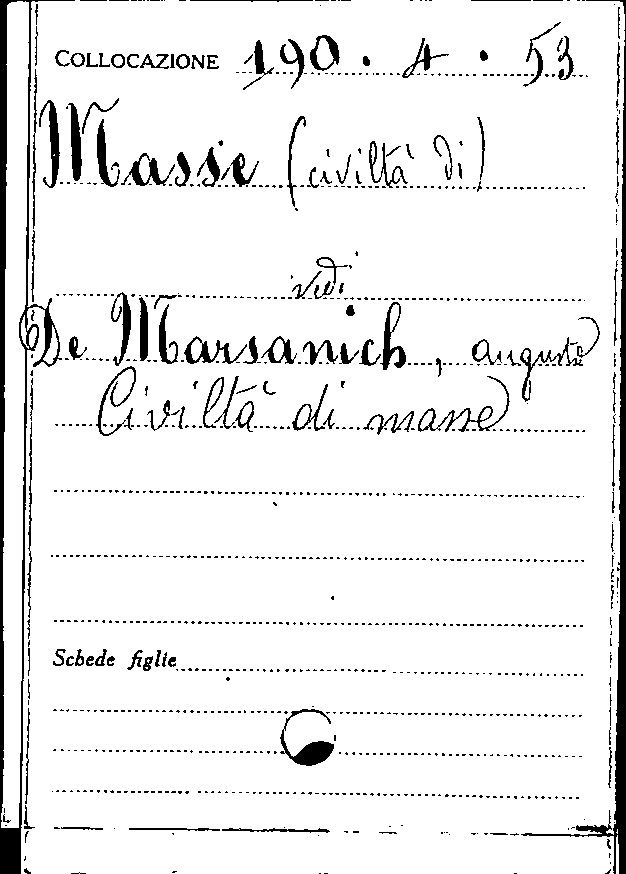 COLLOCAZIONE 190 . 4 . 53
Masse (civiltà di)
vedi
De Marsanich, Augusto
Civiltà di masse
Schede figlie